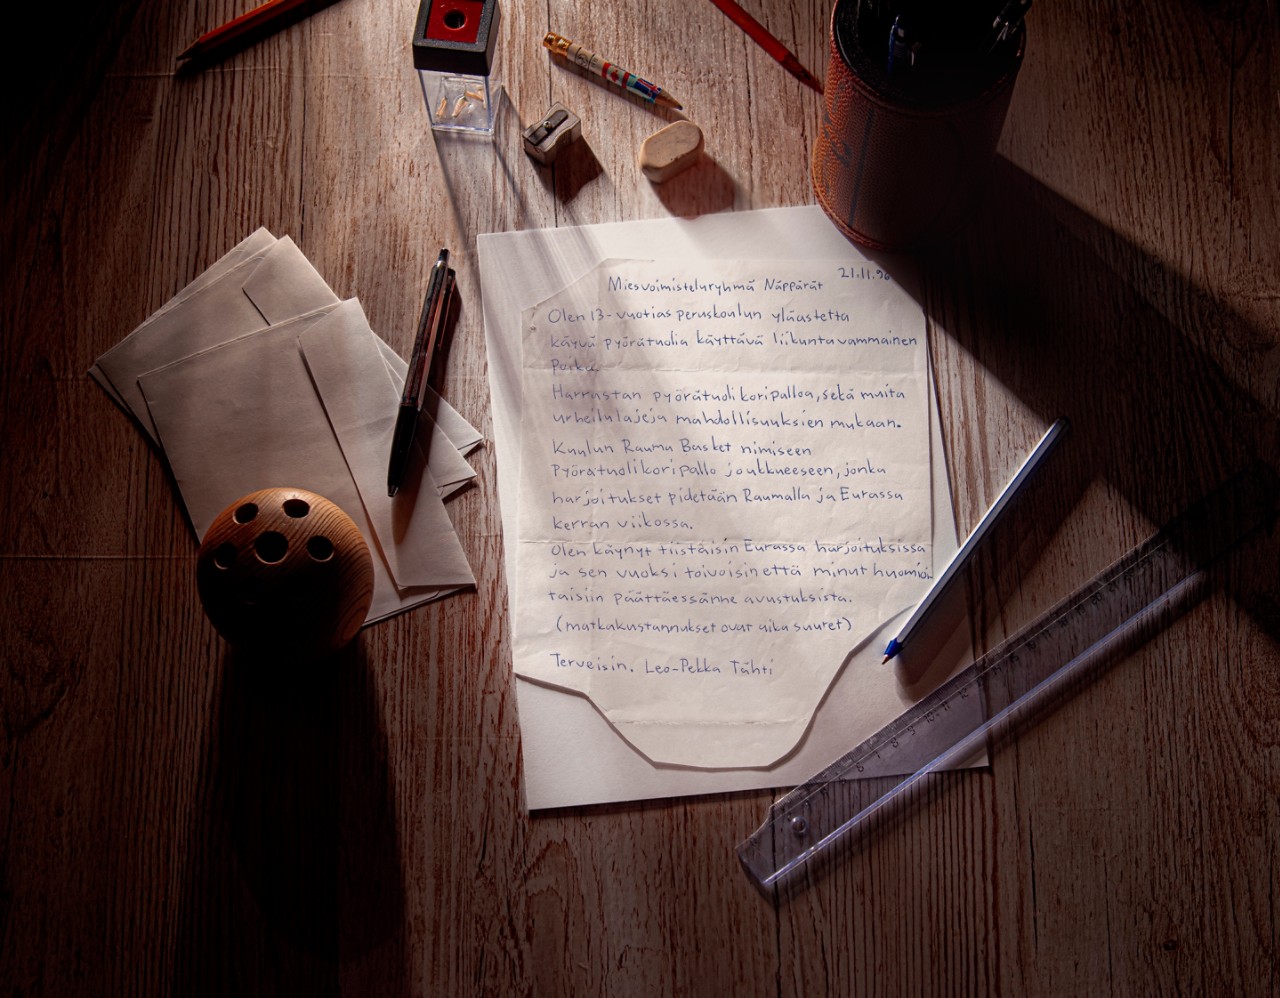 21.11.96
Miesvoimisteluryhmä Näppärät
Olen 13-vuotias peruskoulun yläastetta
käyvä pyörätuolia käyttävä liikuntavammainen
Poika.
Harrastan pyörätuolikoripalloa, sekä muita
urheilulajeja mahdollisuuksien mukaan.
Kuulun Rauma Basket nimiseen
Pyörätuolikoripallo joukkueeseen, jonka
harjoitukset pidetään Raumalla ja Eurassa
kerran viikossa.
Olen käynyt tiistaisin Eurassa harjoituksissa
ja sen vuoksi toivoisin että minut huomioi
taisiin päättäessänne avustuksista.
(matkakustannukset ovat aika suuret)
Terveisin. Leo-Pekka Tähti